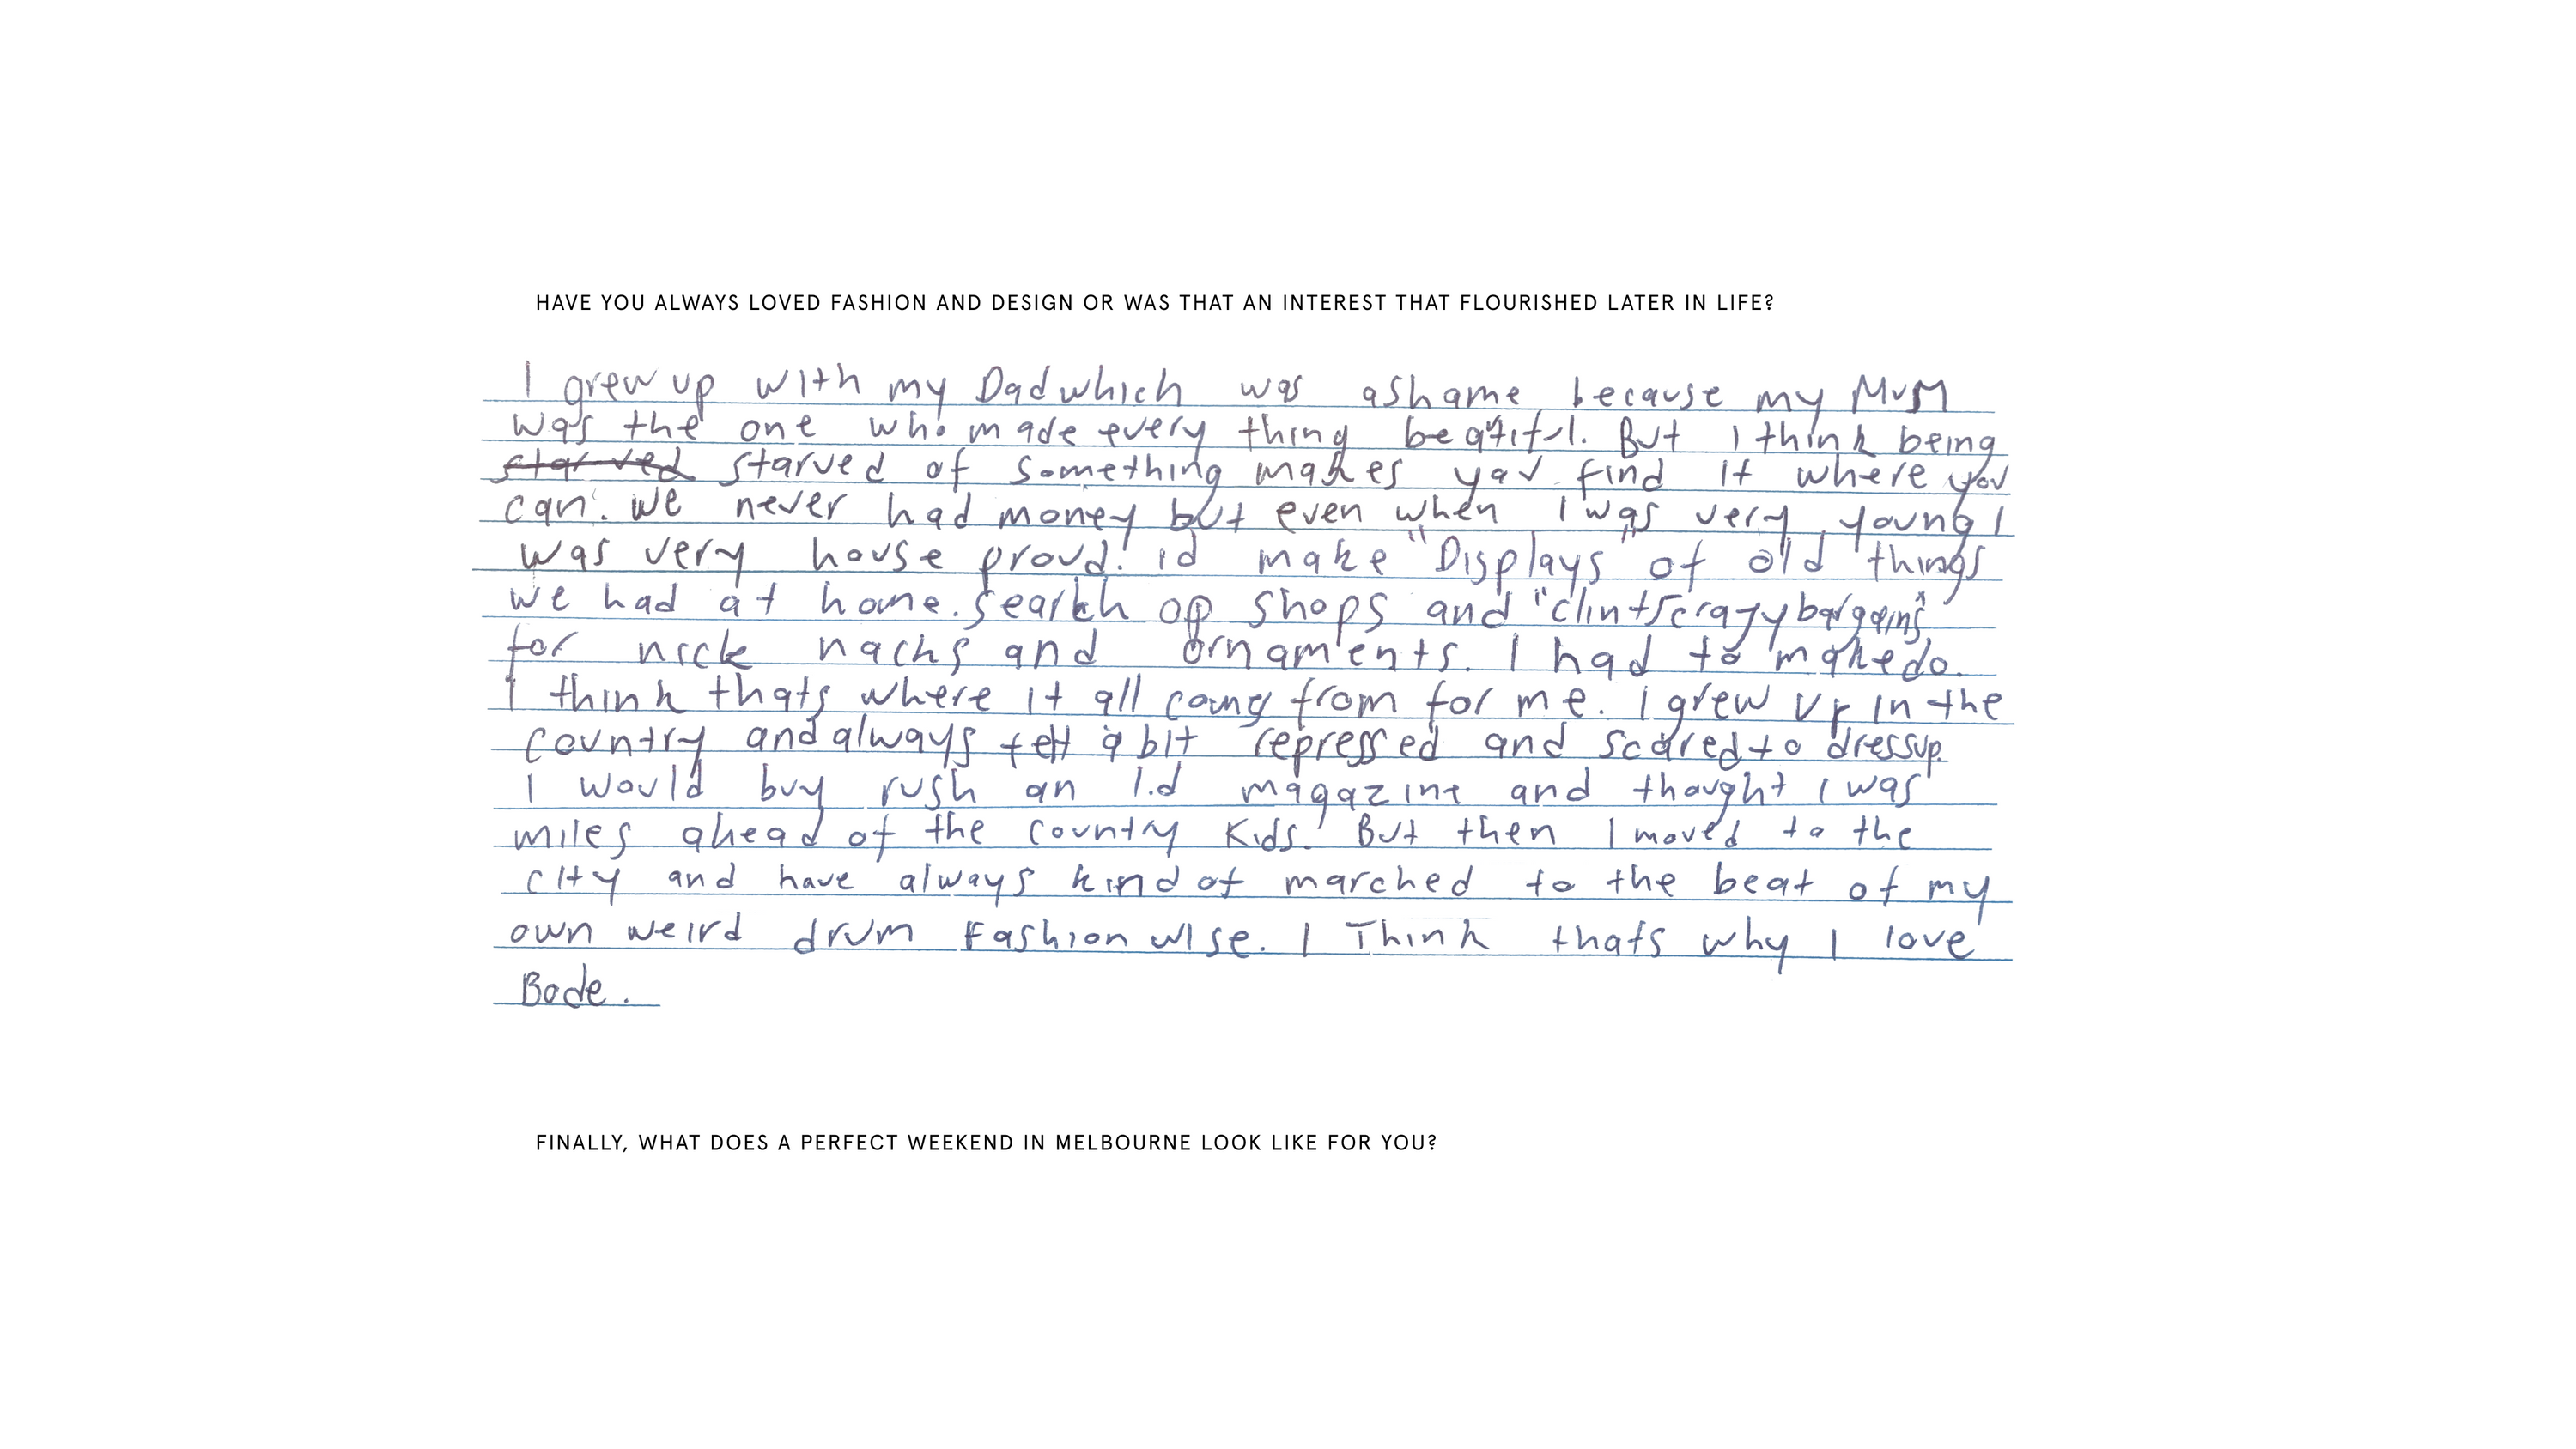 HAVE YOU ALWAYS LOVED FASHION AND DESIGN OR WAS THAT AN INTEREST THAT FLOURISHED LATER IN LIFE?
I grew up with my Dad which was ashame because my MuM
was the one who made every thing beatiful. But I think being
starved starved of something makes you find it where you
can. We never had money but even when I was very young I
was very house proud. id make "Displays" of old things
we had at home. Search op shops and "clints crazy bargains"
for nick nacks and ornaments. I had to make do.
I think thats where it all came from for me. I grew up in the
country and always felt a bit repressed and scared to dress up.
I would buy rush an I.d magazine and thought I was
miles ahead of the country Kids. But then I moved to the
city and have always kind of marched to the beat of my
own weird drum Fashion wise. I Think thats why I love
Bode.
FINALLY, WHAT DOES A PERFECT WEEKEND IN MELBOURNE LOOK LIKE FOR YOU?